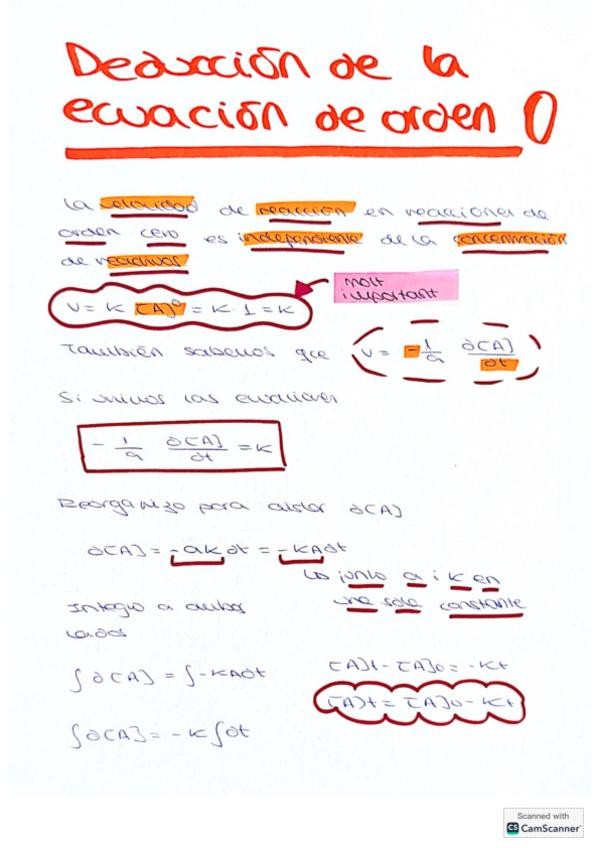 Deducción de la
ecuación de orden 0
La velocidad de reacción en reacciones de
orden cero es independiente de la concentración
de reactivos
V = K [A]⁰ = K · 1 = K
molt
important
También sabemos que V = - 1/a ∂[A]/∂t
Si unimos las ecuaciones
- 1/a ∂[A]/∂t = K
Reorganizo para aislar ∂[A]
∂[A] = -aK ∂t = -KA∂t
Lo junto a i K en
una sola constante
Integro a ambos
lados
∫∂[A] = ∫-KA∂t
∫∂[A] = -K∫∂t
[A]t - [A]0 = -Kt
[A]t = [A]0 - Kt
Scanned with
CS CamScanner